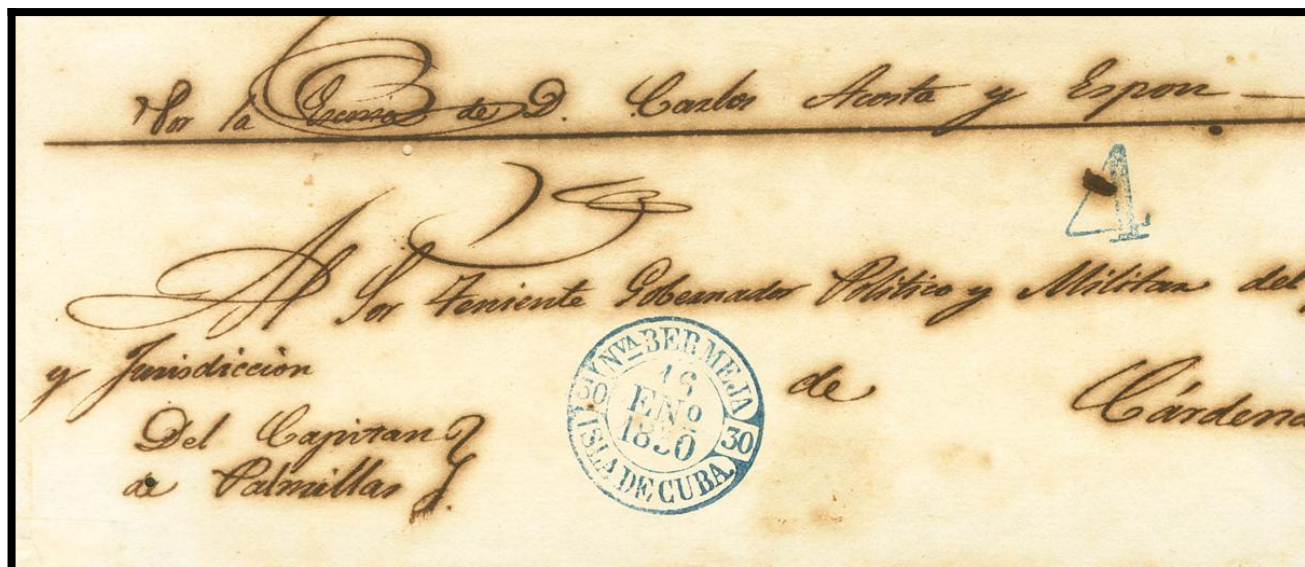 Por la Escnia de D. Carlos Acosta y Espou
4
Al Sor Teniente Gobernador Politico y Militar del
y Jurisdiccion de Cárdena
Del Capitan
de Palmillas
NVA BERMEJA
16
ENO
1850
30 30
ISLA DE CUBA